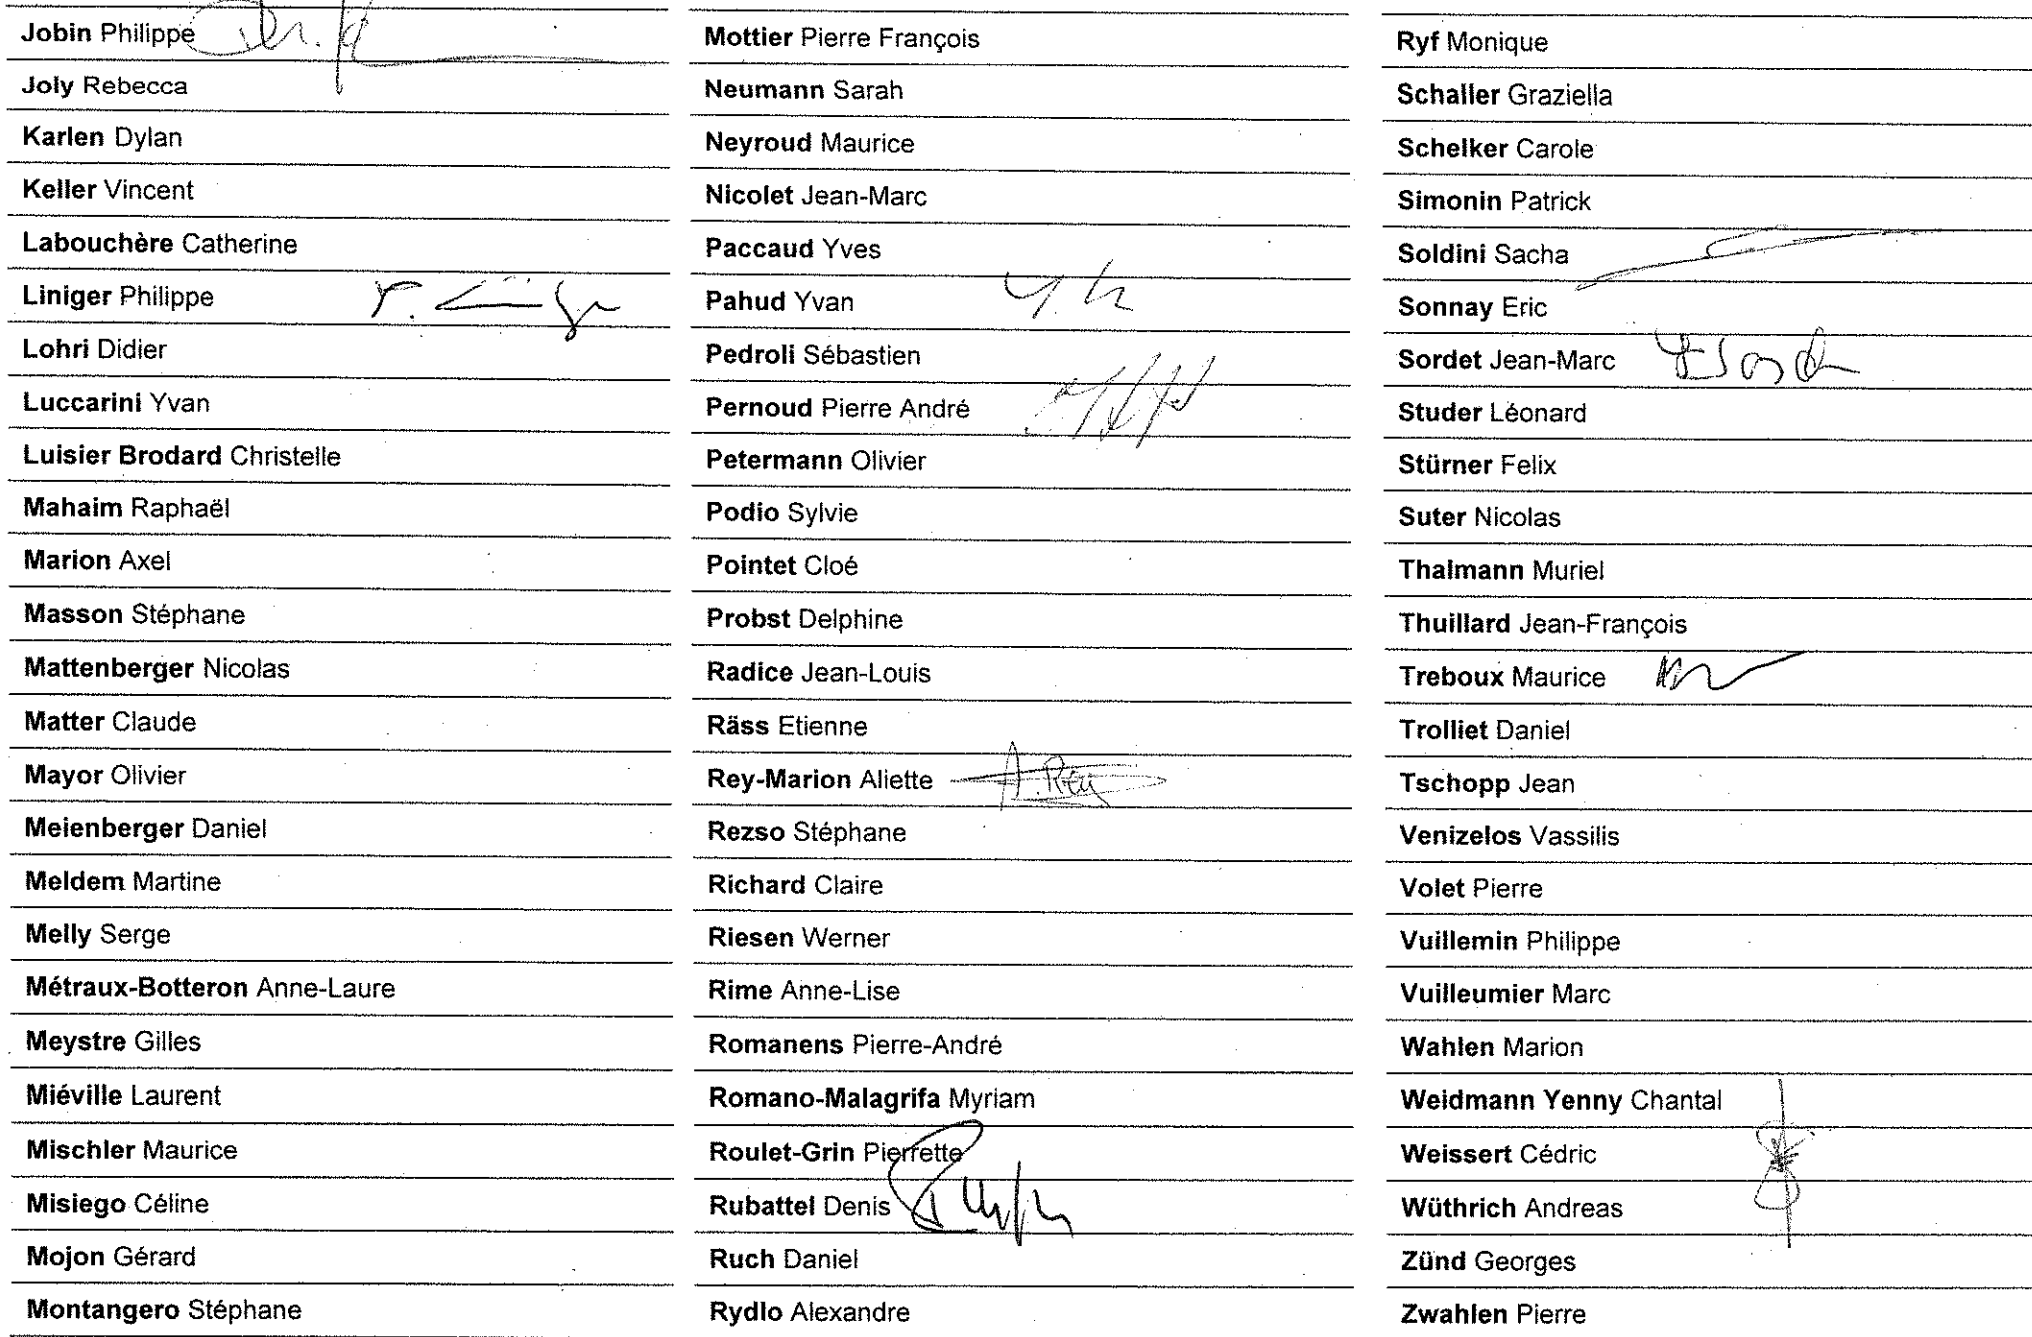 Jobin Philippe
Joly Rebecca
Karlen Dylan
Keller Vincent
Labouchère Catherine
Liniger Philippe
Lohri Didier
Luccarini Yvan
Luisier Brodard Christelle
Mahaim Raphaël
Marion Axel
Masson Stéphane
Mattenberger Nicolas
Matter Claude
Mayor Olivier
Meienberger Daniel
Meldem Martine
Melly Serge
Métraux-Botteron Anne-Laure
Meystre Gilles
Miéville Laurent
Mischler Maurice
Misiego Céline
Mojon Gérard
Montangero Stéphane
Mottier Pierre François
Neumann Sarah
Neyroud Maurice
Nicolet Jean-Marc
Paccaud Yves
Pahud Yvan
Pedroli Sébastien
Pernoud Pierre André
Petermann Olivier
Podio Sylvie
Pointet Cloé
Probst Delphine
Radice Jean-Louis
Räss Etienne
Rey-Marion Aliette A. Rey
Rezso Stéphane
Richard Claire
Riesen Werner
Rime Anne-Lise
Romanens Pierre-André
Romano-Malagrifa Myriam
Roulet-Grin Pierrette
Rubattel Denis
Ruch Daniel
Rydlo Alexandre
Ryf Monique
Schaller Graziella
Schelker Carole
Simonin Patrick
Soldini Sacha
Sonnay Eric
Sordet Jean-Marc
Studer Léonard
Stürner Felix
Suter Nicolas
Thalmann Muriel
Thuillard Jean-François
Treboux Maurice
Trolliet Daniel
Tschopp Jean
Venizelos Vassilis
Volet Pierre
Vuillemin Philippe
Vuilleumier Marc
Wahlen Marion
Weidmann Yenny Chantal
Weissert Cédric
Wüthrich Andreas
Zünd Georges
Zwahlen Pierre